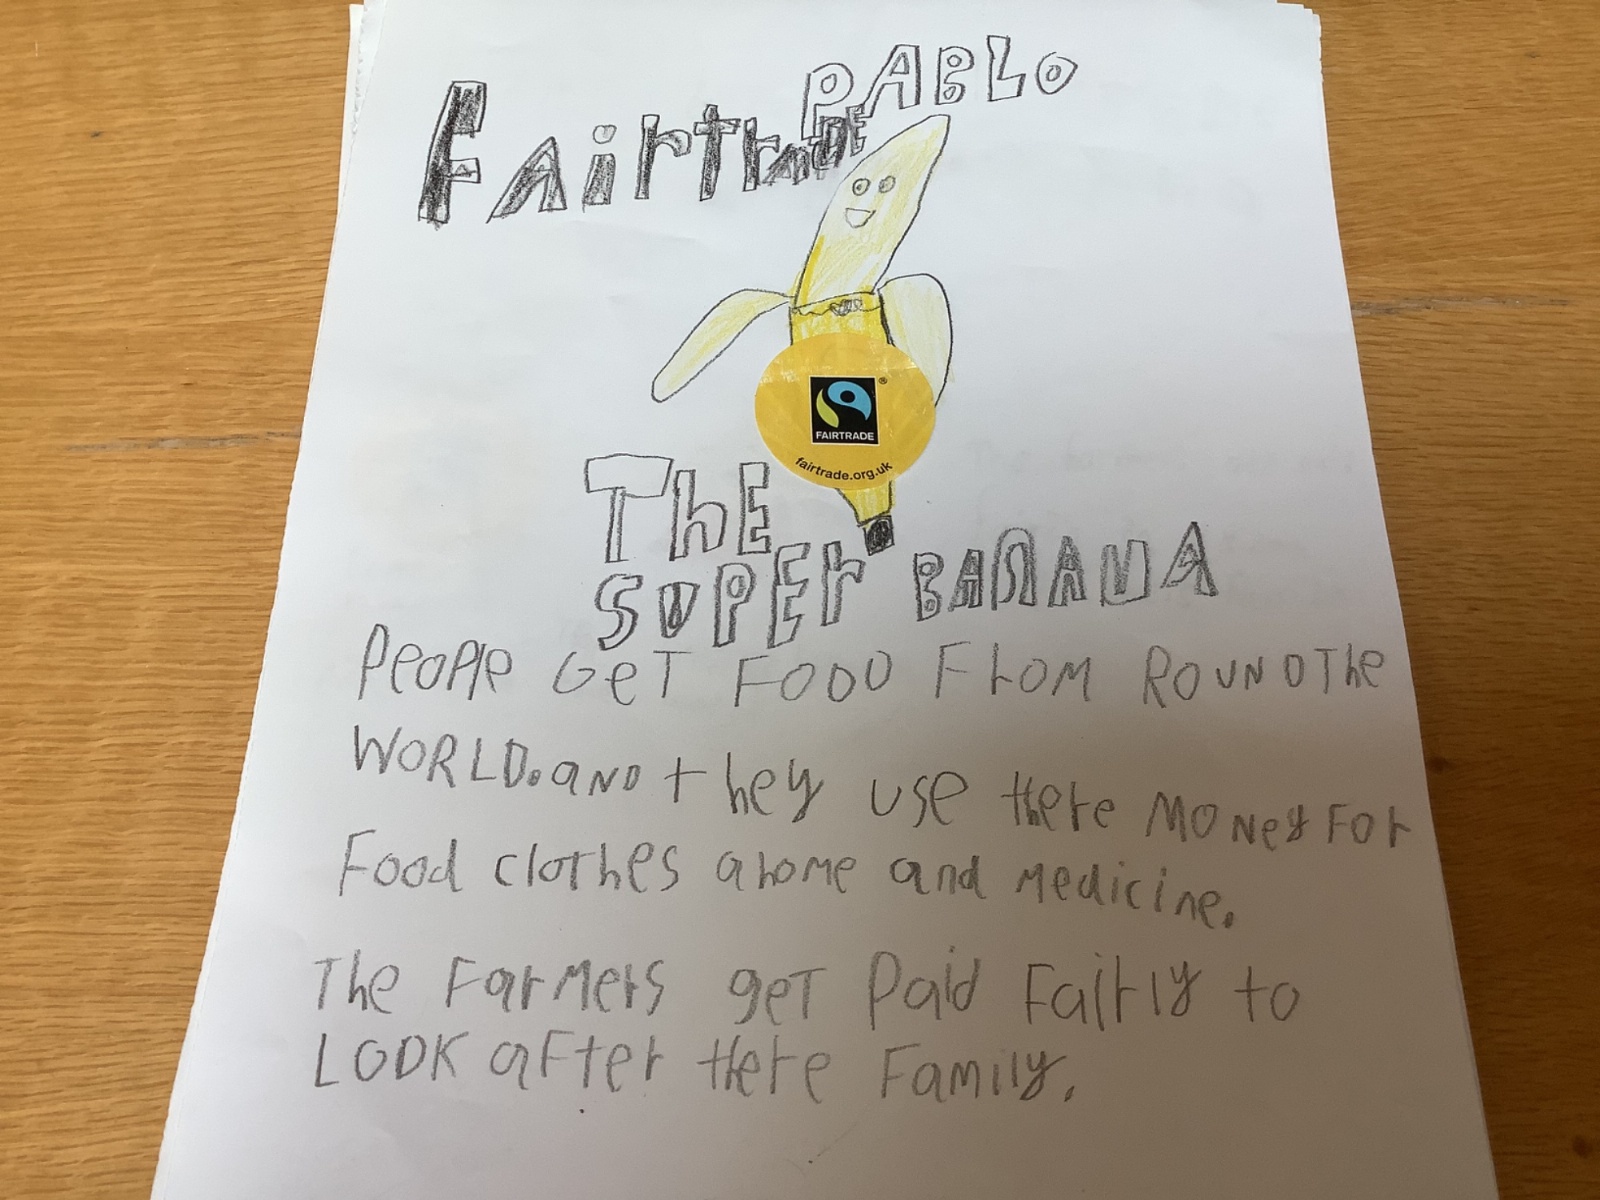 PABLO
FAirtrADE
FAIRTRADE
fairtrade.org.uk
ThE
SUPEr BANANA
PeoPle GeT FOOD FroM ROUND The
WORLD. aND they use there MONey For
Food clothes a home and Medicine.
The Farmers geT Paid Fairly to
LOOK after there Family.